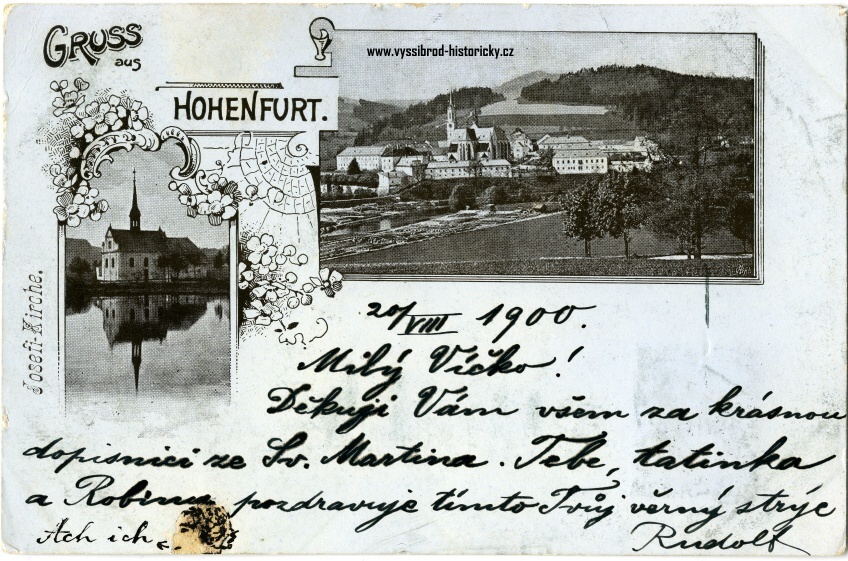 GRUSS
aus
HOHENFURT.
www.vyssibrod-historicky.cz
Josefi-Kirche.
20/VIII 1900.
Milý Víčko!
Děkuji Vám všem za krásnou
dopisnici ze Sv. Martina. Tebe, tatínka
a Robina pozdravuje tímto Tvůj věrný strýc
Rudolf
Ach ich